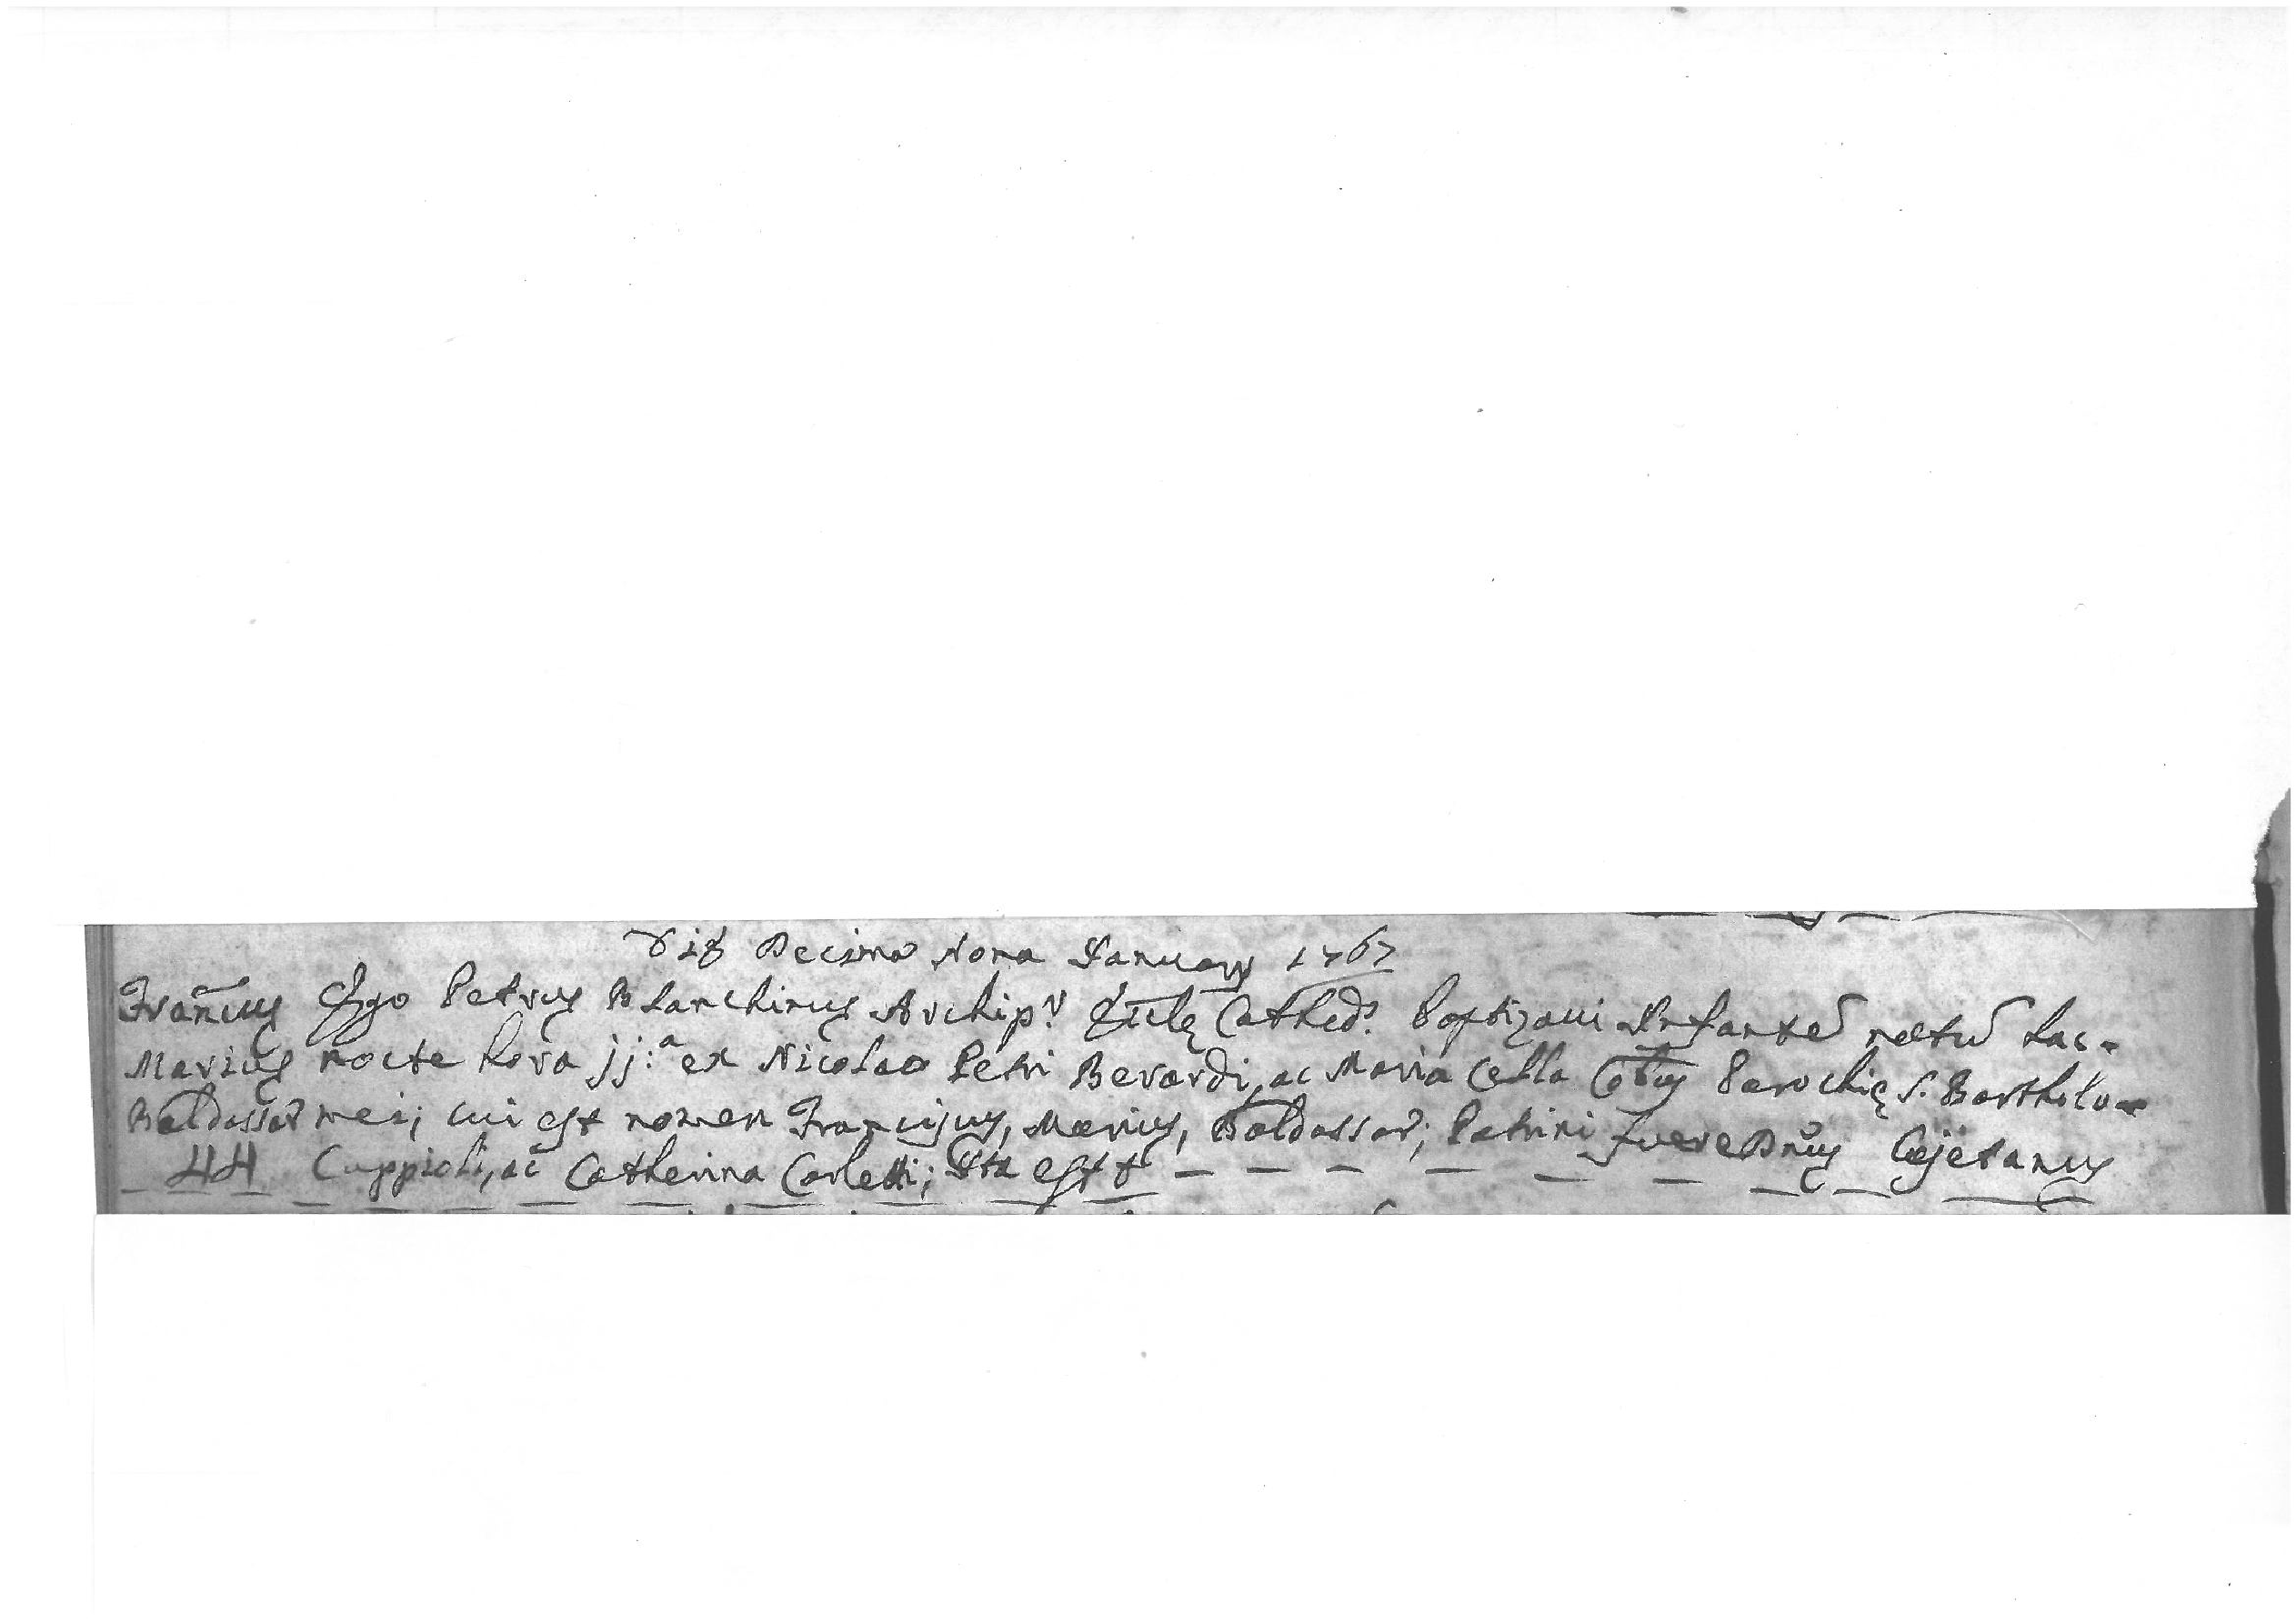 Die Decima Nona Januarij 1767
Frañcus Ego Petrus Blanchinus Archip.r Ecclę Cathed. Baptizavi Infantẽ natũ hac-
Marius nocte hora jj:a ex Nicolao Petri Berardi, ac Maria Cella Cõbus Parochię S. Bartholo-
Baldassar mei; cui est nomen Franciscus, Marius, Baldassar; Patrini fuere Dñus Cajetanus
44 Cuppioli, ac Catherina Carletti; Ita est